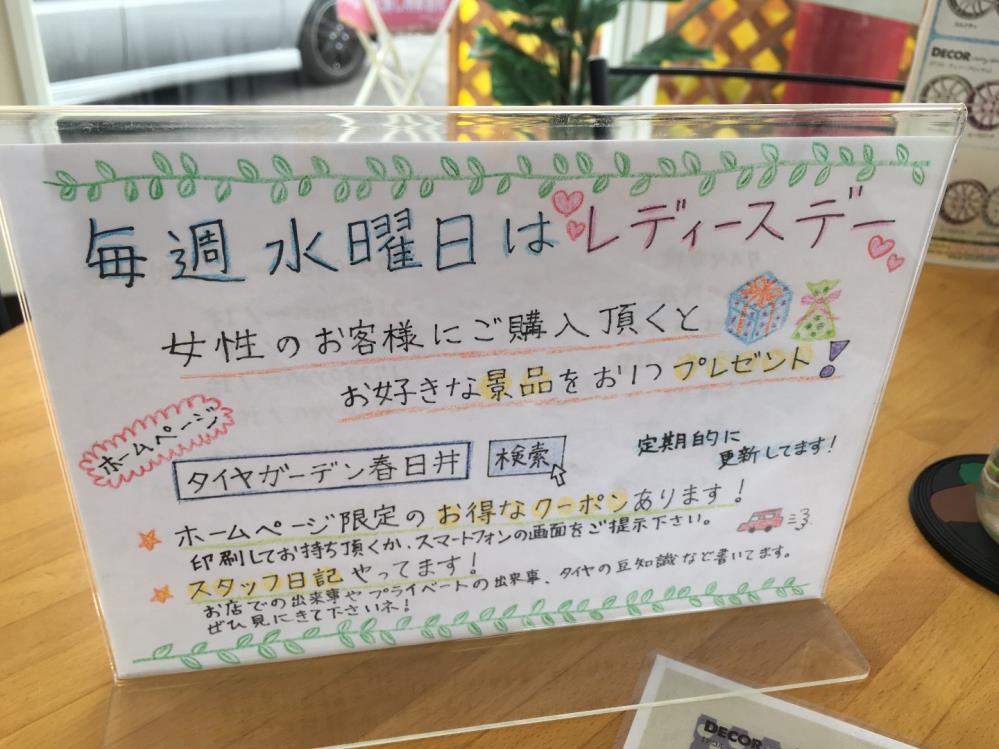 毎週水曜日はレディースデー
女性のお客様にご購入頂くと
お好きな景品をお1つプレゼント!
ホームページ
タイヤガーデン春日井 検索
定期的に
更新してます!
ホームページ限定のお得なクーポンあります!
印刷してお持ち頂くか、スマートフォンの画面をご提示下さい。
スタッフ日記やってます!
お店での出来事やプライベートの出来事、タイヤの豆知識など書いてます。
ぜひ見にきて下さいネ!
DECOR
DECOR